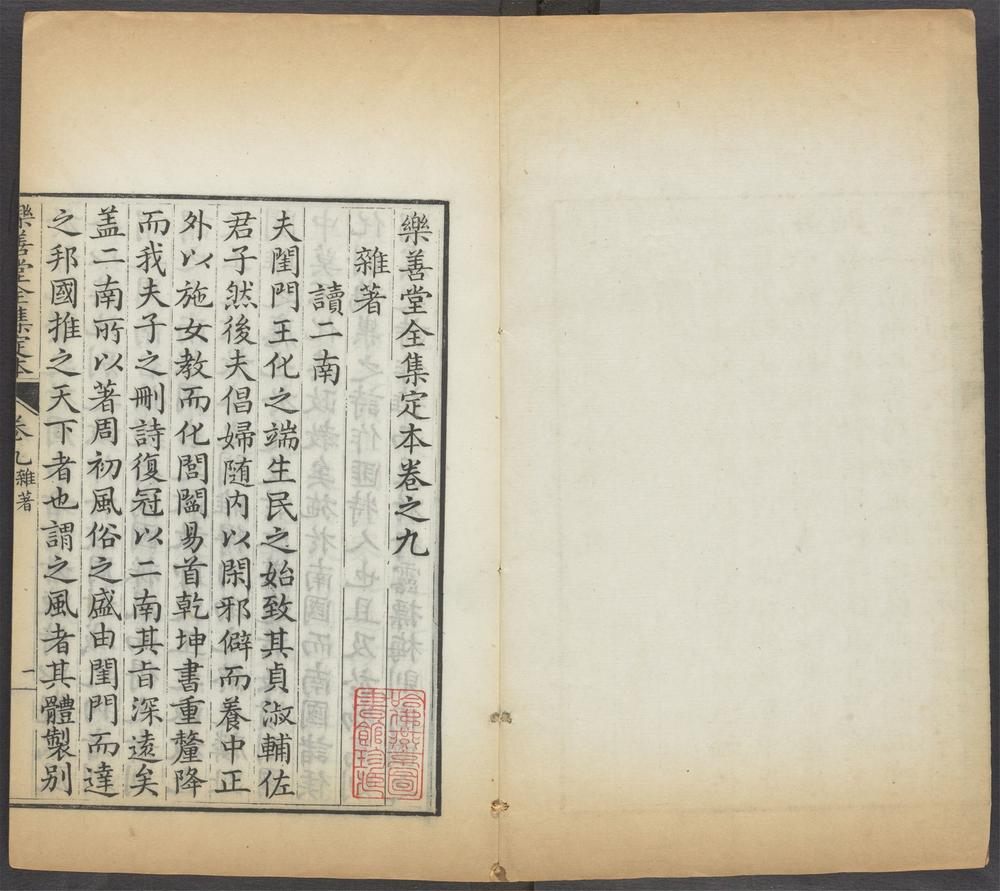 樂善堂全集定本卷之九
雜著
讀二南
夫閨門王化之端生民之始致其貞淑輔佐
君子然後夫倡婦随内以閑邪僻而養中正
外以施女教而化閭閻易首乾坤書重釐降
而我夫子之刪詩復冠以二南其旨深遠矣
盖二南所以著周初風俗之盛由閨門而達
之邦國推之天下者也謂之風者其體製别
樂善堂全集定本
卷九雜著
一
哈佛燕京
圖書館珍藏